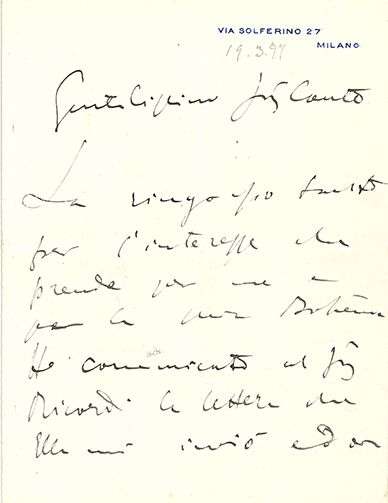 VIA SOLFERINO 27
MILANO
19.3.97
Gentilissimo Sig Conte
La ringrazio tanto
per l'interesse che
prende per me e
per la mia Bohème
Ho comunicato al Sig
Ricordi la lettera che
Ella mi inviò ed ora